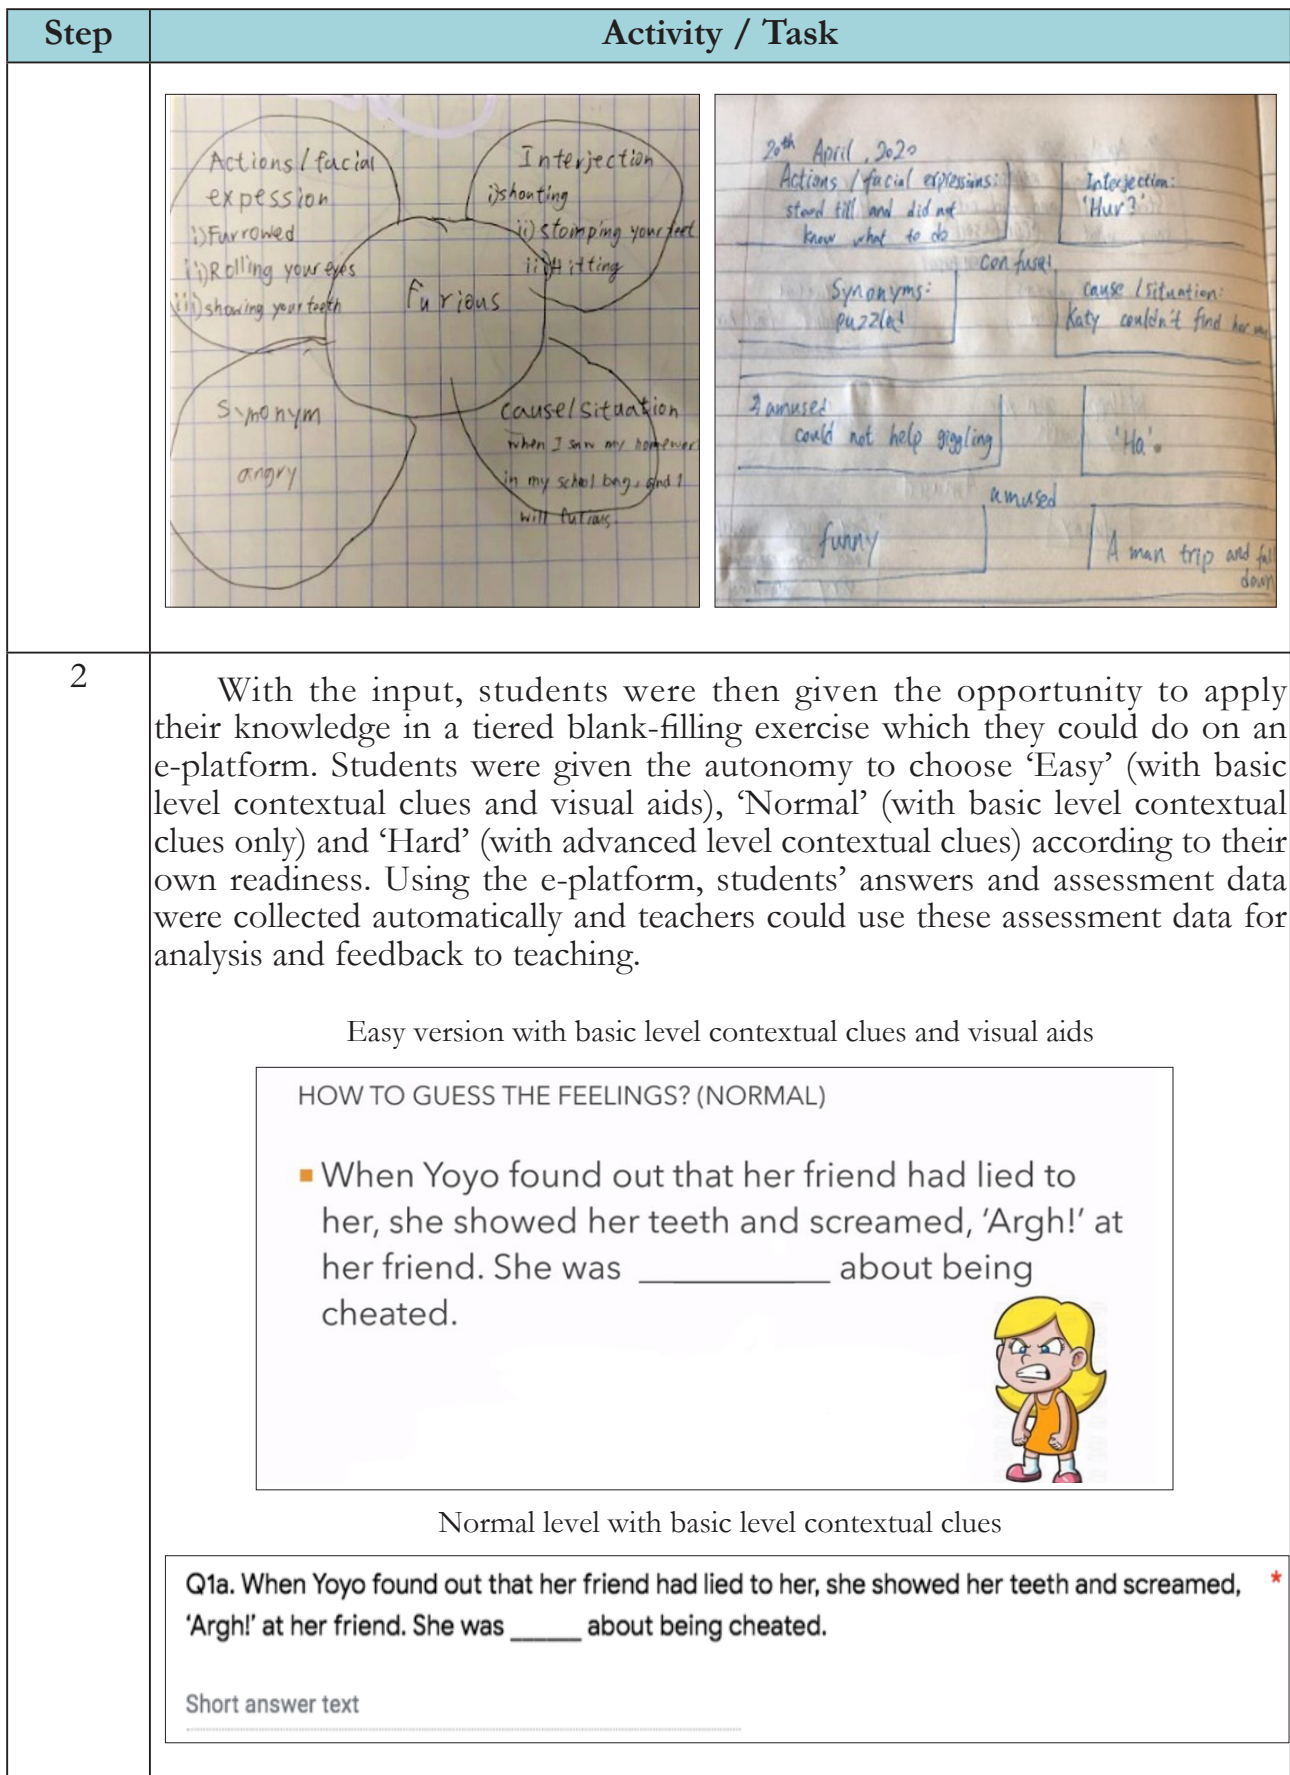 Step
Activity / Task
Actions / facial
expession
i) Furrowed
ii) Rolling your eyes
iii) showing your teeth
Interjection
i) shouting
ii) stomping your feet
iii) Hitting
furious
Synonym
angry
cause/situation
when I saw my homewor
in my school bag, and I
will furious.
20th April, 2020
Actions / facial expressions:
stood till and did not
know what to do
Interjection:
'Hur?'
confused
Synonyms:
puzzled
cause / situation:
Katy couldn't find her
2 amused
could not help giggling
'Ha'.
amused
funny
A man trip and fall
down
2
With the input, students were then given the opportunity to apply
their knowledge in a tiered blank-filling exercise which they could do on an
e-platform. Students were given the autonomy to choose ‘Easy’ (with basic
level contextual clues and visual aids), ‘Normal’ (with basic level contextual
clues only) and ‘Hard’ (with advanced level contextual clues) according to their
own readiness. Using the e-platform, students’ answers and assessment data
were collected automatically and teachers could use these assessment data for
analysis and feedback to teaching.
Easy version with basic level contextual clues and visual aids
HOW TO GUESS THE FEELINGS? (NORMAL)
▪ When Yoyo found out that her friend had lied to
her, she showed her teeth and screamed, ‘Argh!’ at
her friend. She was __________ about being
cheated.
Normal level with basic level contextual clues
Q1a. When Yoyo found out that her friend had lied to her, she showed her teeth and screamed, *
‘Argh!’ at her friend. She was ______ about being cheated.
Short answer text